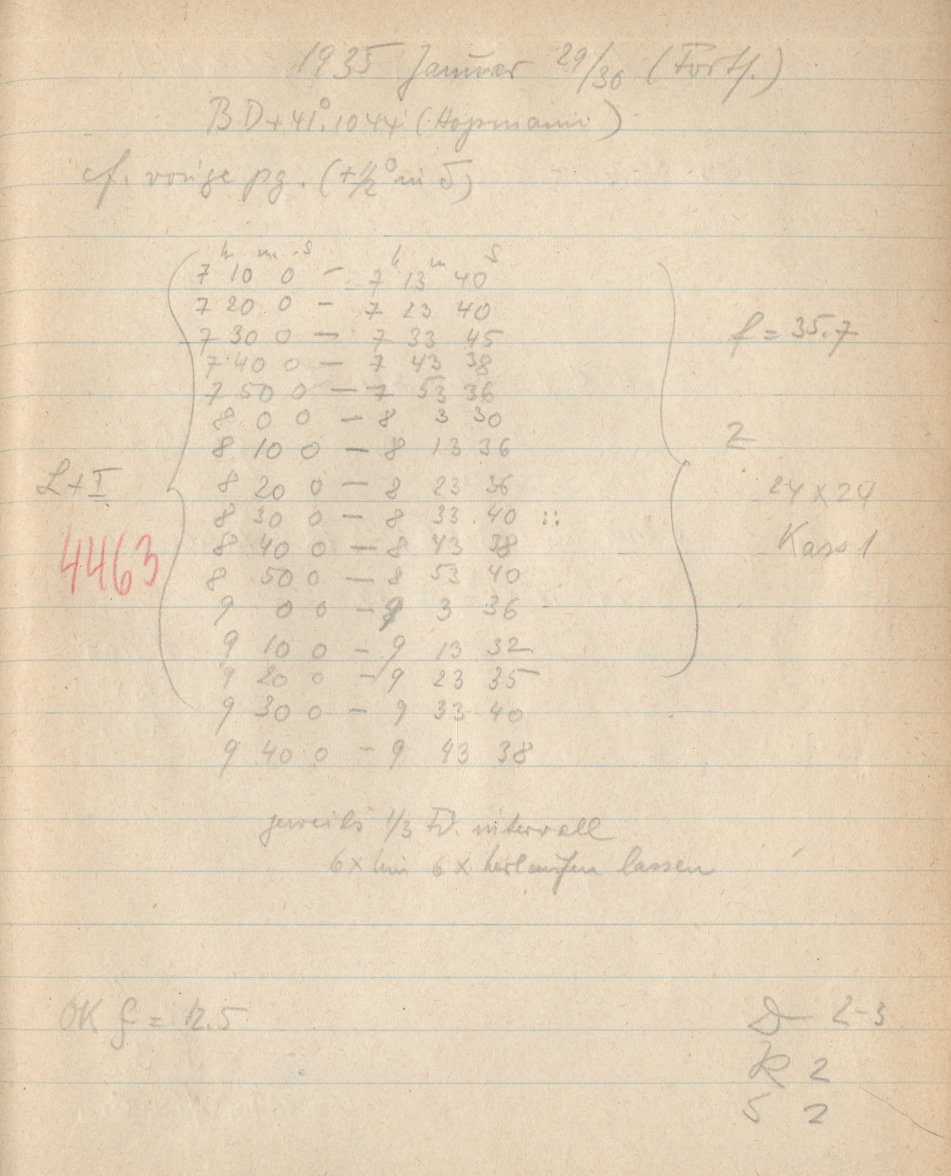 1935 Januar 29/30 (Forts.)
BD+41°.1044 (Hopmann)
cf. vorige pg. (+½° in δ)
7h 10m 0s – 7h 13m 40s
7 20 0 – 7 23 40
7 30 0 – 7 33 45
f = 35.7
7 40 0 – 7 43 38
7 50 0 – 7 53 36
8 0 0 – 8 3 30
2
8 10 0 – 8 13 36
L+I
8 20 0 – 8 23 36
24 x 24
8 30 0 – 8 33 40 ::
4463
8 40 0 – 8 43 38
Kass 1
8 50 0 – 8 53 40
9 0 0 – 9 3 36
9 10 0 – 9 13 32
9 20 0 – 9 23 35
9 30 0 – 9 33 40
9 40 0 – 9 43 38
jeweils 1/3 intervall
6x hin 6x herlaufen lassen
OK f = 12.5
D 2-3
R 2
S 2